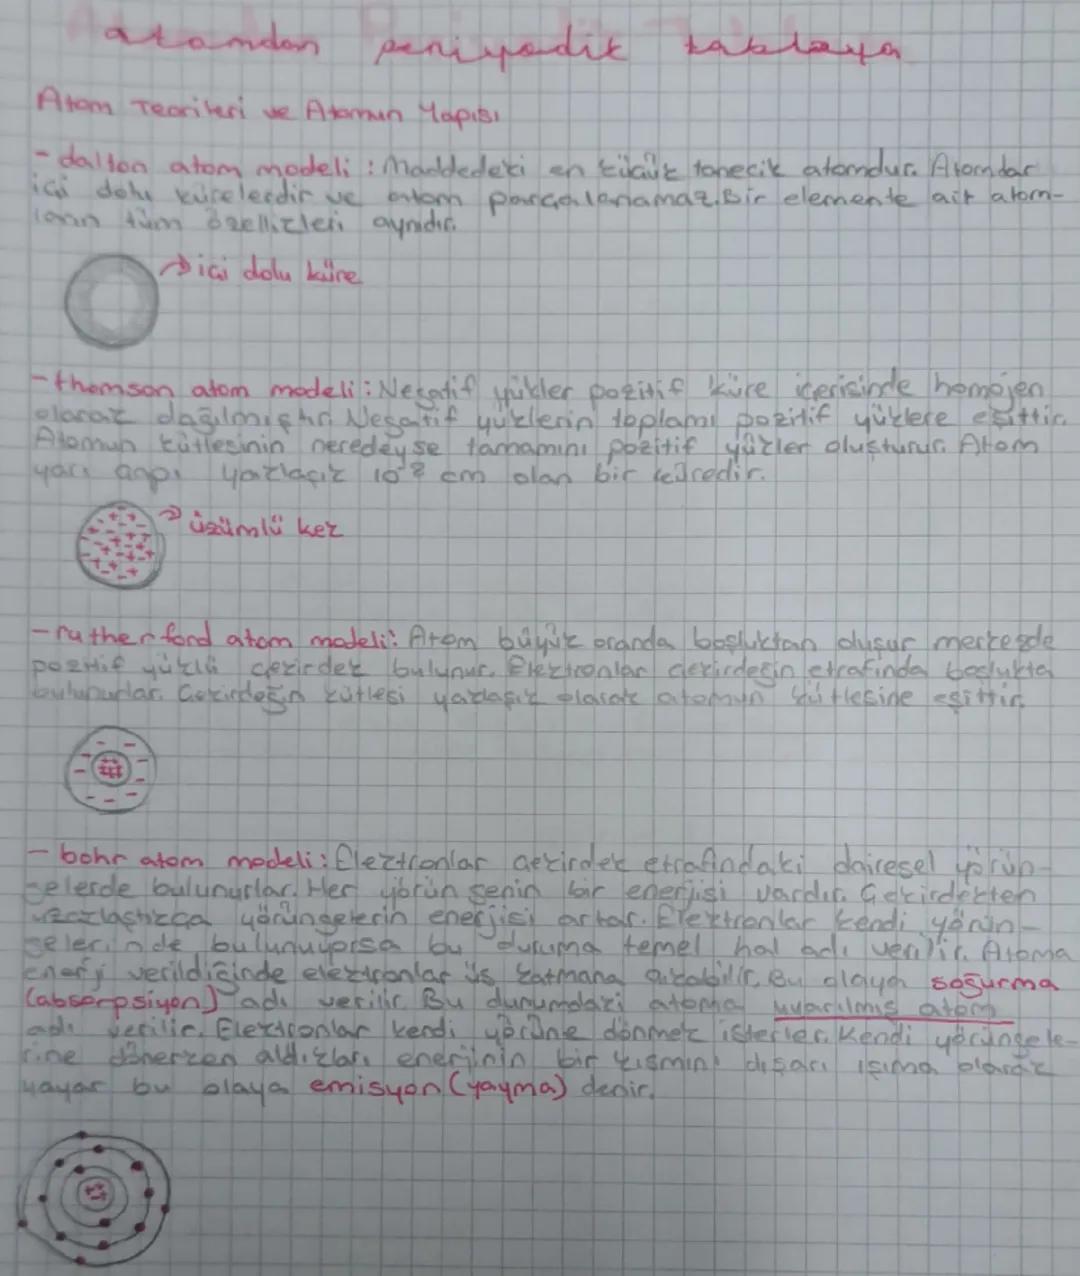 atomdan periyodik tabloya
Atom Teorileri ve Atomun Yapısı
- dalton atom modeli : Maddedeki en küçük tanecik atomdur. Atomlar
içi dolu kürelerdir ve atom parçalanamaz. Bir elemente ait atom-
ların tüm özellikleri aynıdır.
→ içi dolu küre
- thomson atom modeli : Negatif yükler pozitif küre içerisinde homojen
olarak dağılmıştır. Negatif yüklerin toplamı pozitif yüklere eşittir.
Atomun kütlesinin neredeyse tamamını pozitif yükler oluşturur. Atom
yarı çapı yaklaşık 10⁻⁸ cm olan bir küredir.
→ üzümlü kek
- rutherford atom modeli : Atom büyük oranda boşluktan oluşur merkezde
pozitif yüklü çekirdek bulunur. Elektronlar çekirdeğin etrafında boşlukta
bulunurlar. Çekirdeğin kütlesi yaklaşık olarak atomun kütlesine eşittir.
- bohr atom modeli : Elektronlar çekirdek etrafındaki dairesel yörün-
gelerde bulunurlar. Her yörüngenin bir enerjisi vardır. Çekirdekten
uzaklaştıkça yörüngelerin enerjisi artar. Elektronlar kendi yörün-
gelerinde bulunuyorsa bu duruma temel hal adı verilir. Atoma
enerji verildiğinde elektronlar üs katmana çıkabilir. Bu olaya soğurma
(absorpsiyon) adı verilir. Bu durumdaki atoma uyarılmış atom
adı verilir. Elektronlar kendi yörüne dönmek isterler. Kendi yörüngele-
rine dönerken aldıkları enerjinin bir kısmını dışarı ışıma olarak
yayar bu olaya emisyon (yayma) denir.